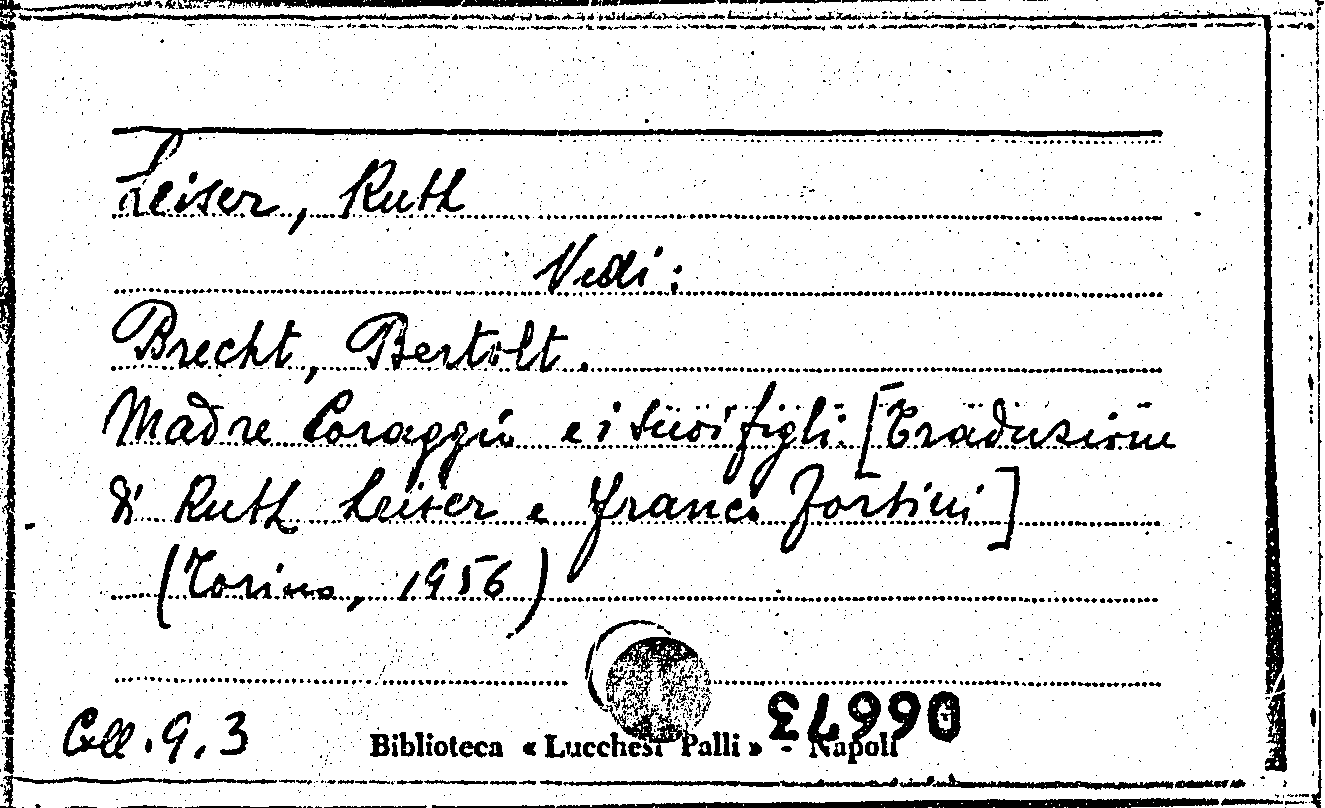 Leiser, Ruth
Vedi:
Brecht, Bertolt.
Madre Coraggio e i suoi figli. [Traduzione
di Ruth Leiser e Franco Fortini]
(Torino, 1956)
06673
Coll. 9.3
Biblioteca « Lucchesi Palli » - Napoli